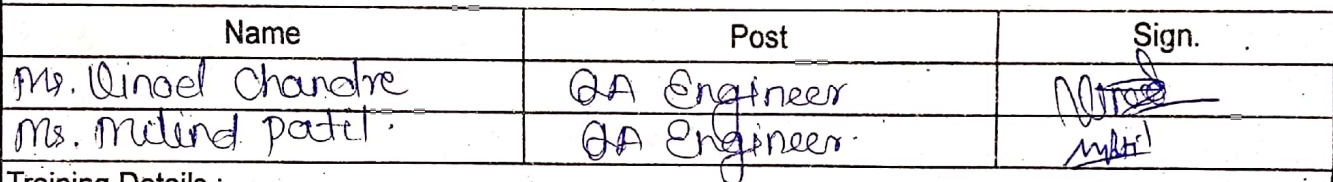 Name Post Sign.
Mr. Vinod Chandre QA Engineer
Mr. Milind Patil. QA Engineer.
Training Details :